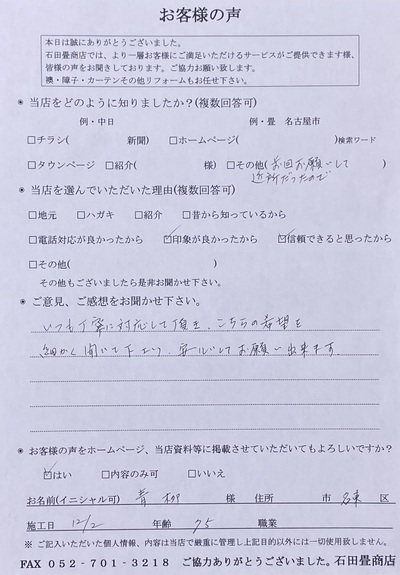 お客様の声
本日は誠にありがとうございました。
石田畳商店では、より一層お客様にご満足いただけるサービスがご提供できます様、
皆様の声をお聞きしております。ご協力お願い致します。
襖・障子・カーテンその他リフォームもお任せ下さい。
◉ 当店をどのように知りましたか？(複数回答可)
例・中日 例・畳 名古屋市
□チラシ( 新聞) □ホームページ( )検索ワード
□タウンページ □紹介( 様) □その他(前回お願いして
近所だったので )
◉ 当店を選んでいただいた理由(複数回答可)
□地元 □ハガキ □紹介 □昔から知っているから
□電話対応が良かったから ☑印象が良かったから ☑信頼できると思ったから
□その他( )
その他もございましたら是非お聞かせ下さい。
◉ ご意見、ご感想をお聞かせ下さい。
いつも丁寧に対応して頂き、こちらの希望を
細かく聞いて下さり、安心してお願い出来ます
◉ お客様の声をホームページ、当店資料等に掲載させていただいてもよろしいですか?
☑はい □内容のみ可 □いいえ
お名前(イニシャル可) 青柳 様 住所 市 名東 区
施工日 12/2 年齢 75 職業
※ ご記入いただいた個人情報、内容は当店で厳重に管理し上記目的以外には一切使用致しません。
FAX 052-701-3218 ご協力ありがとうございました。石田畳商店